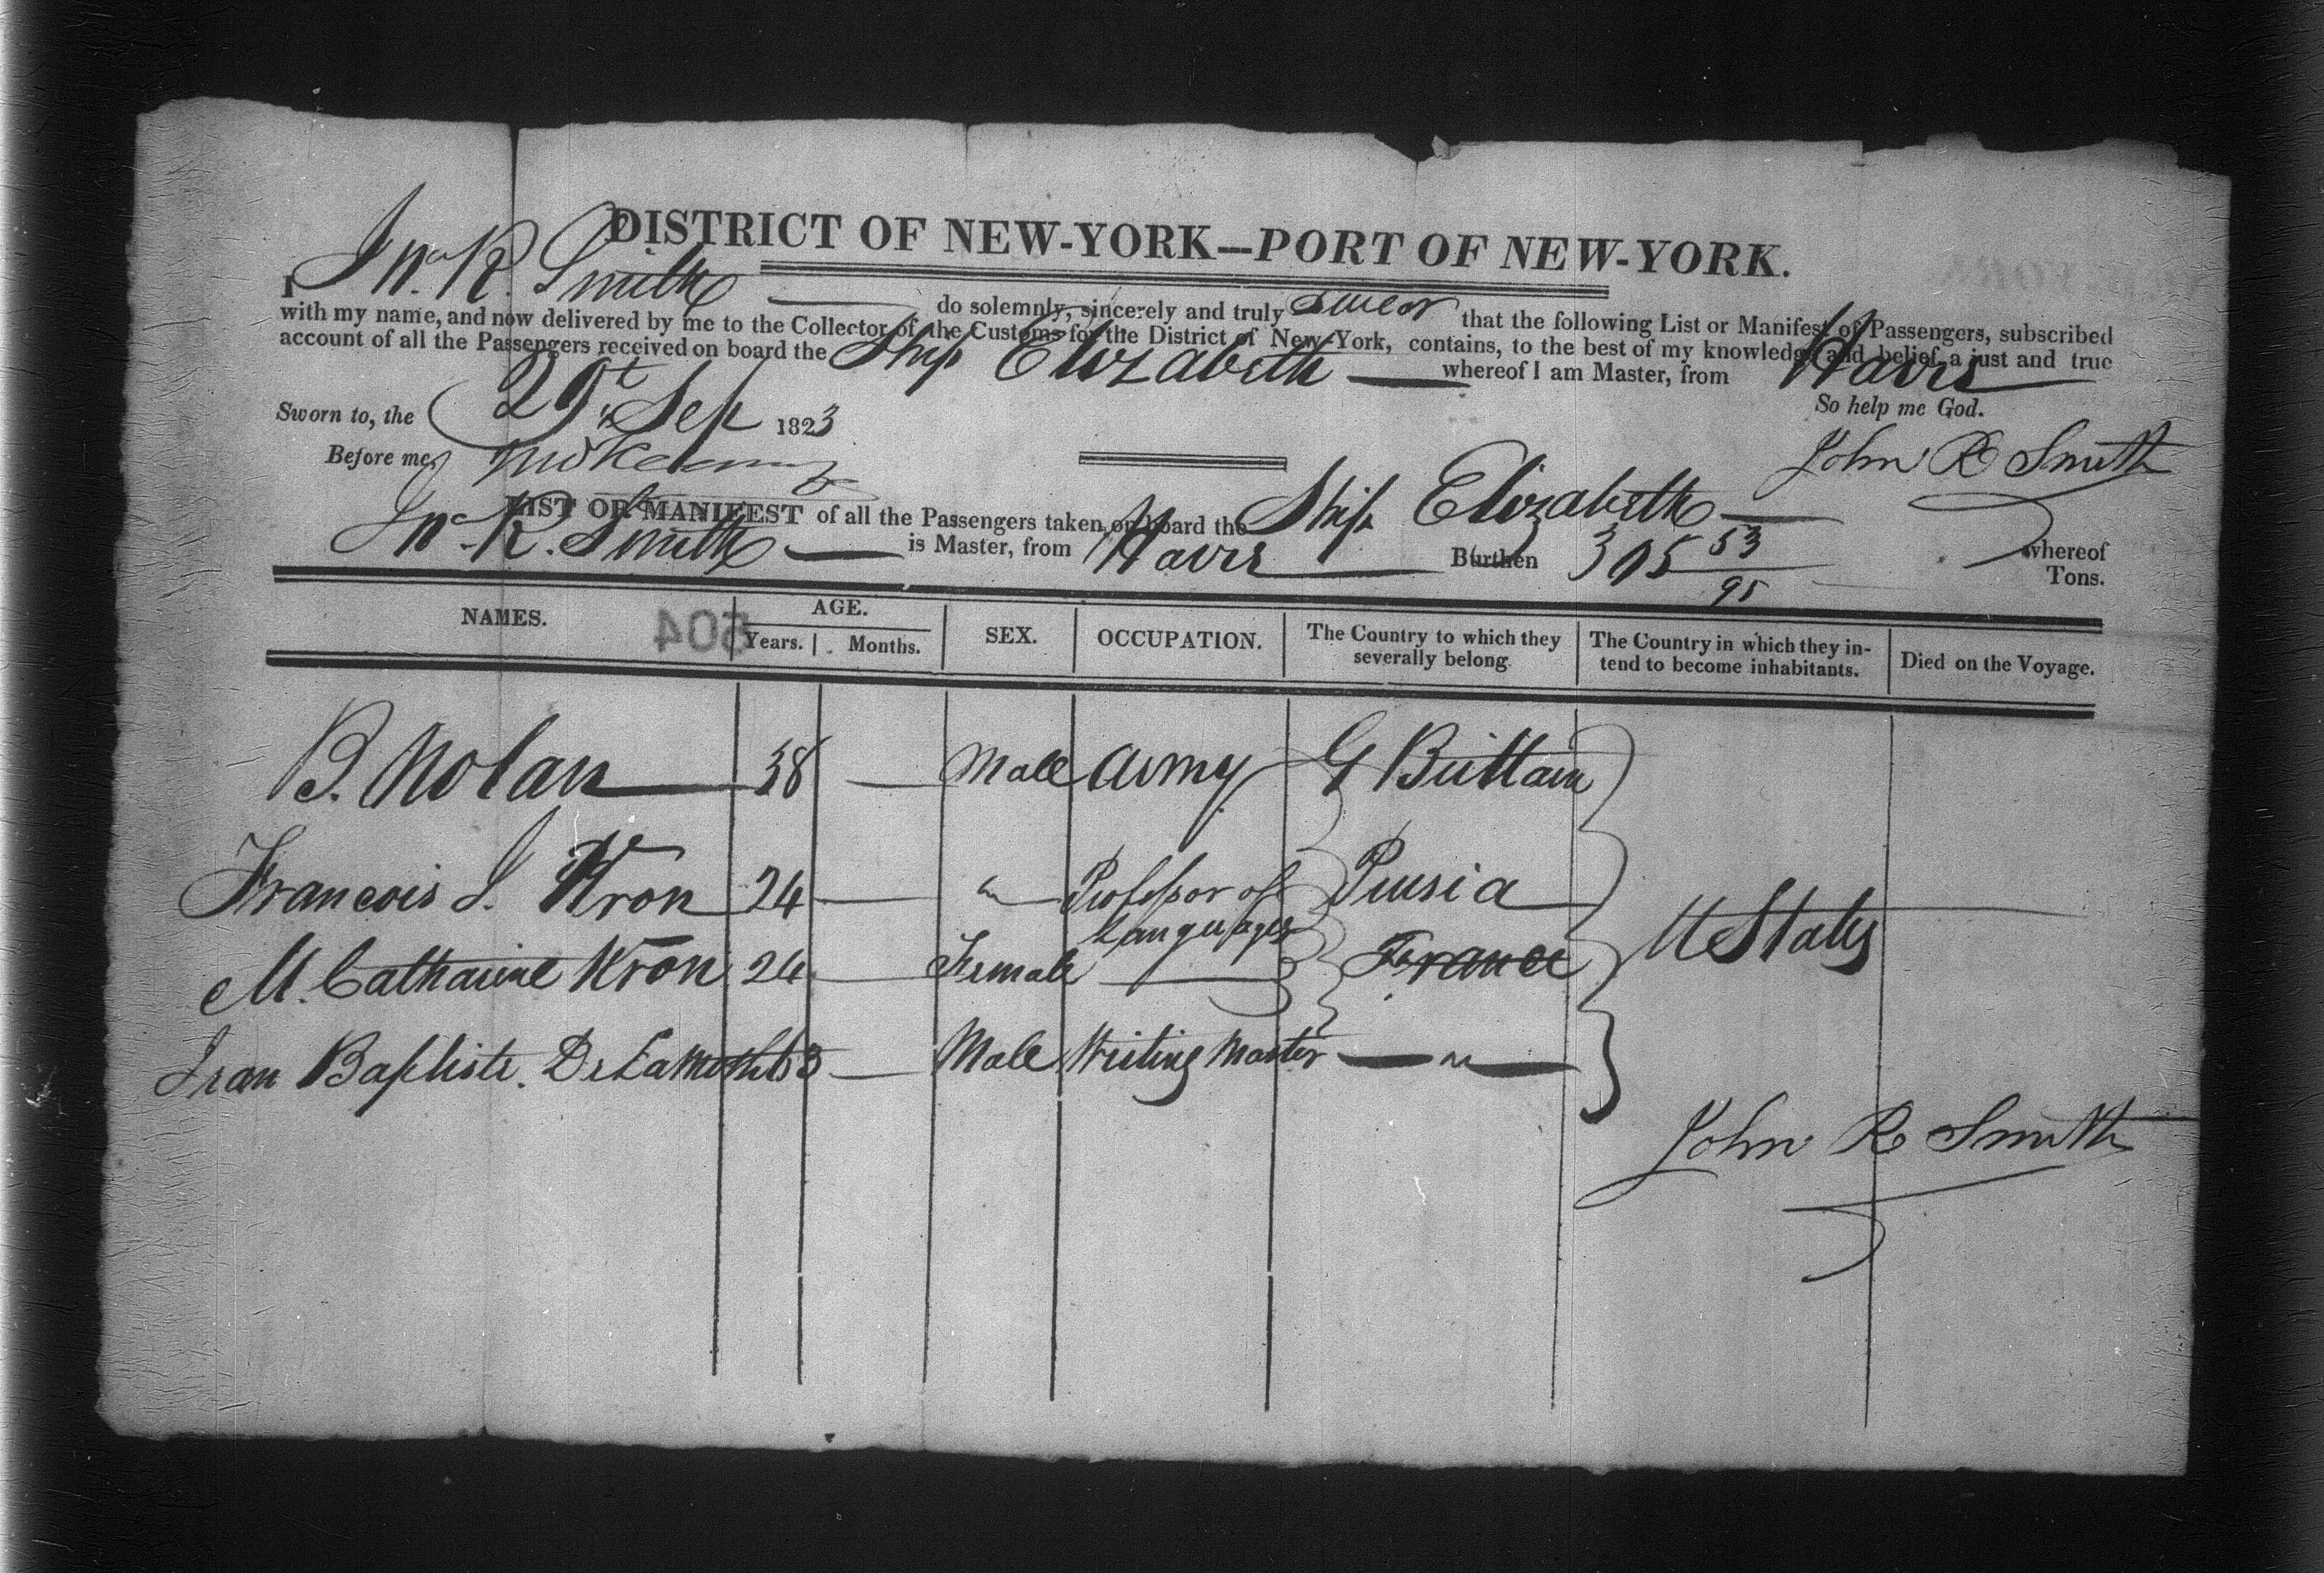 DISTRICT OF NEW-YORK—PORT OF NEW-YORK.
I Jno. R. Smith do solemnly, sincerely and truly swear that the following List or Manifest of Passengers, subscribed
with my name, and now delivered by me to the Collector of the Customs for the District of New-York, contains, to the best of my knowledge and belief, a just and true
account of all the Passengers received on board the Ship Elizabeth whereof I am Master, from Havre
So help me God.
Sworn to, the 29t Sep 1823
John R Smith
Before me,
LIST OR MANIFEST of all the Passengers taken on board the Ship Elizabeth whereof
Jno. R. Smith is Master, from Havre Burthen 305 53/95 Tons.
504
NAMES. AGE. SEX. OCCUPATION. The Country to which they severally belong. The Country in which they intend to become inhabitants. Died on the Voyage.
Years. Months.
B. Nolan 38 — Male Army G Brittain
Francois J. Kron 24 — " Professor of Languages Prusia
U States
M. Catharine Kron 24 — Female — France
Jean Baptiste. 53 — Male Writing Master — " —
John R Smith